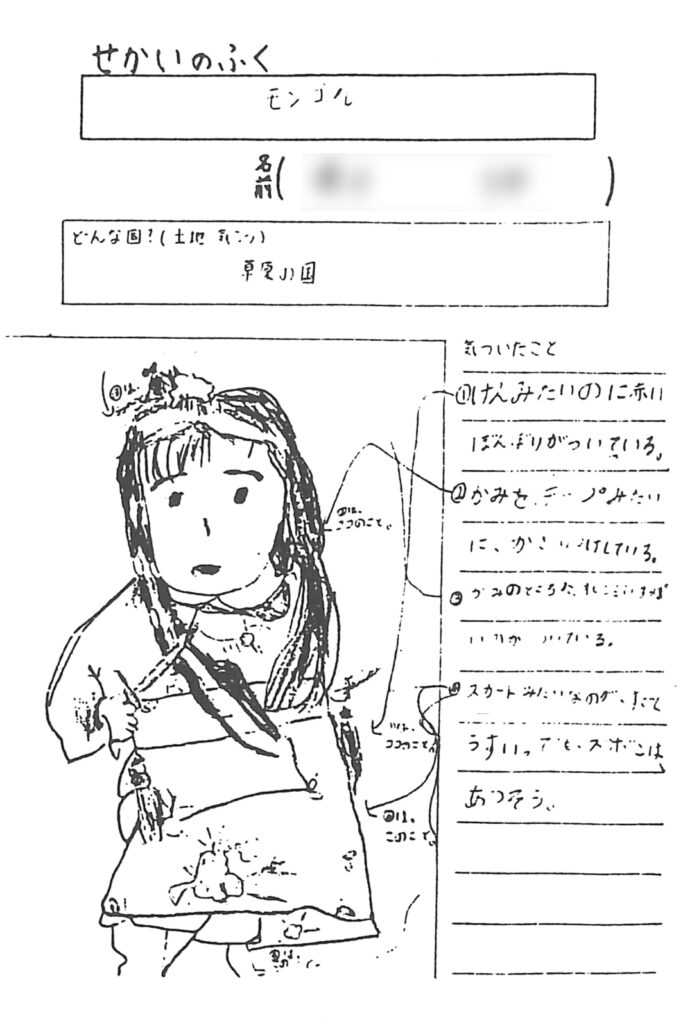 せかいのふく
モンゴル
名前( )
どんな国?(土地 気こう)
草原の国
気づいたこと
①けんみたいのに赤い
ぼんぼりがついている。
②かみを、テープみたい
に、か している。
③かみのところに、
いている。
④スカートみたいなのが、すごく
うすい。でも、ズボンは
あつそう。
③は、
②は、
ココのこと。
①は、
ココのこと。
④は、
このこと。